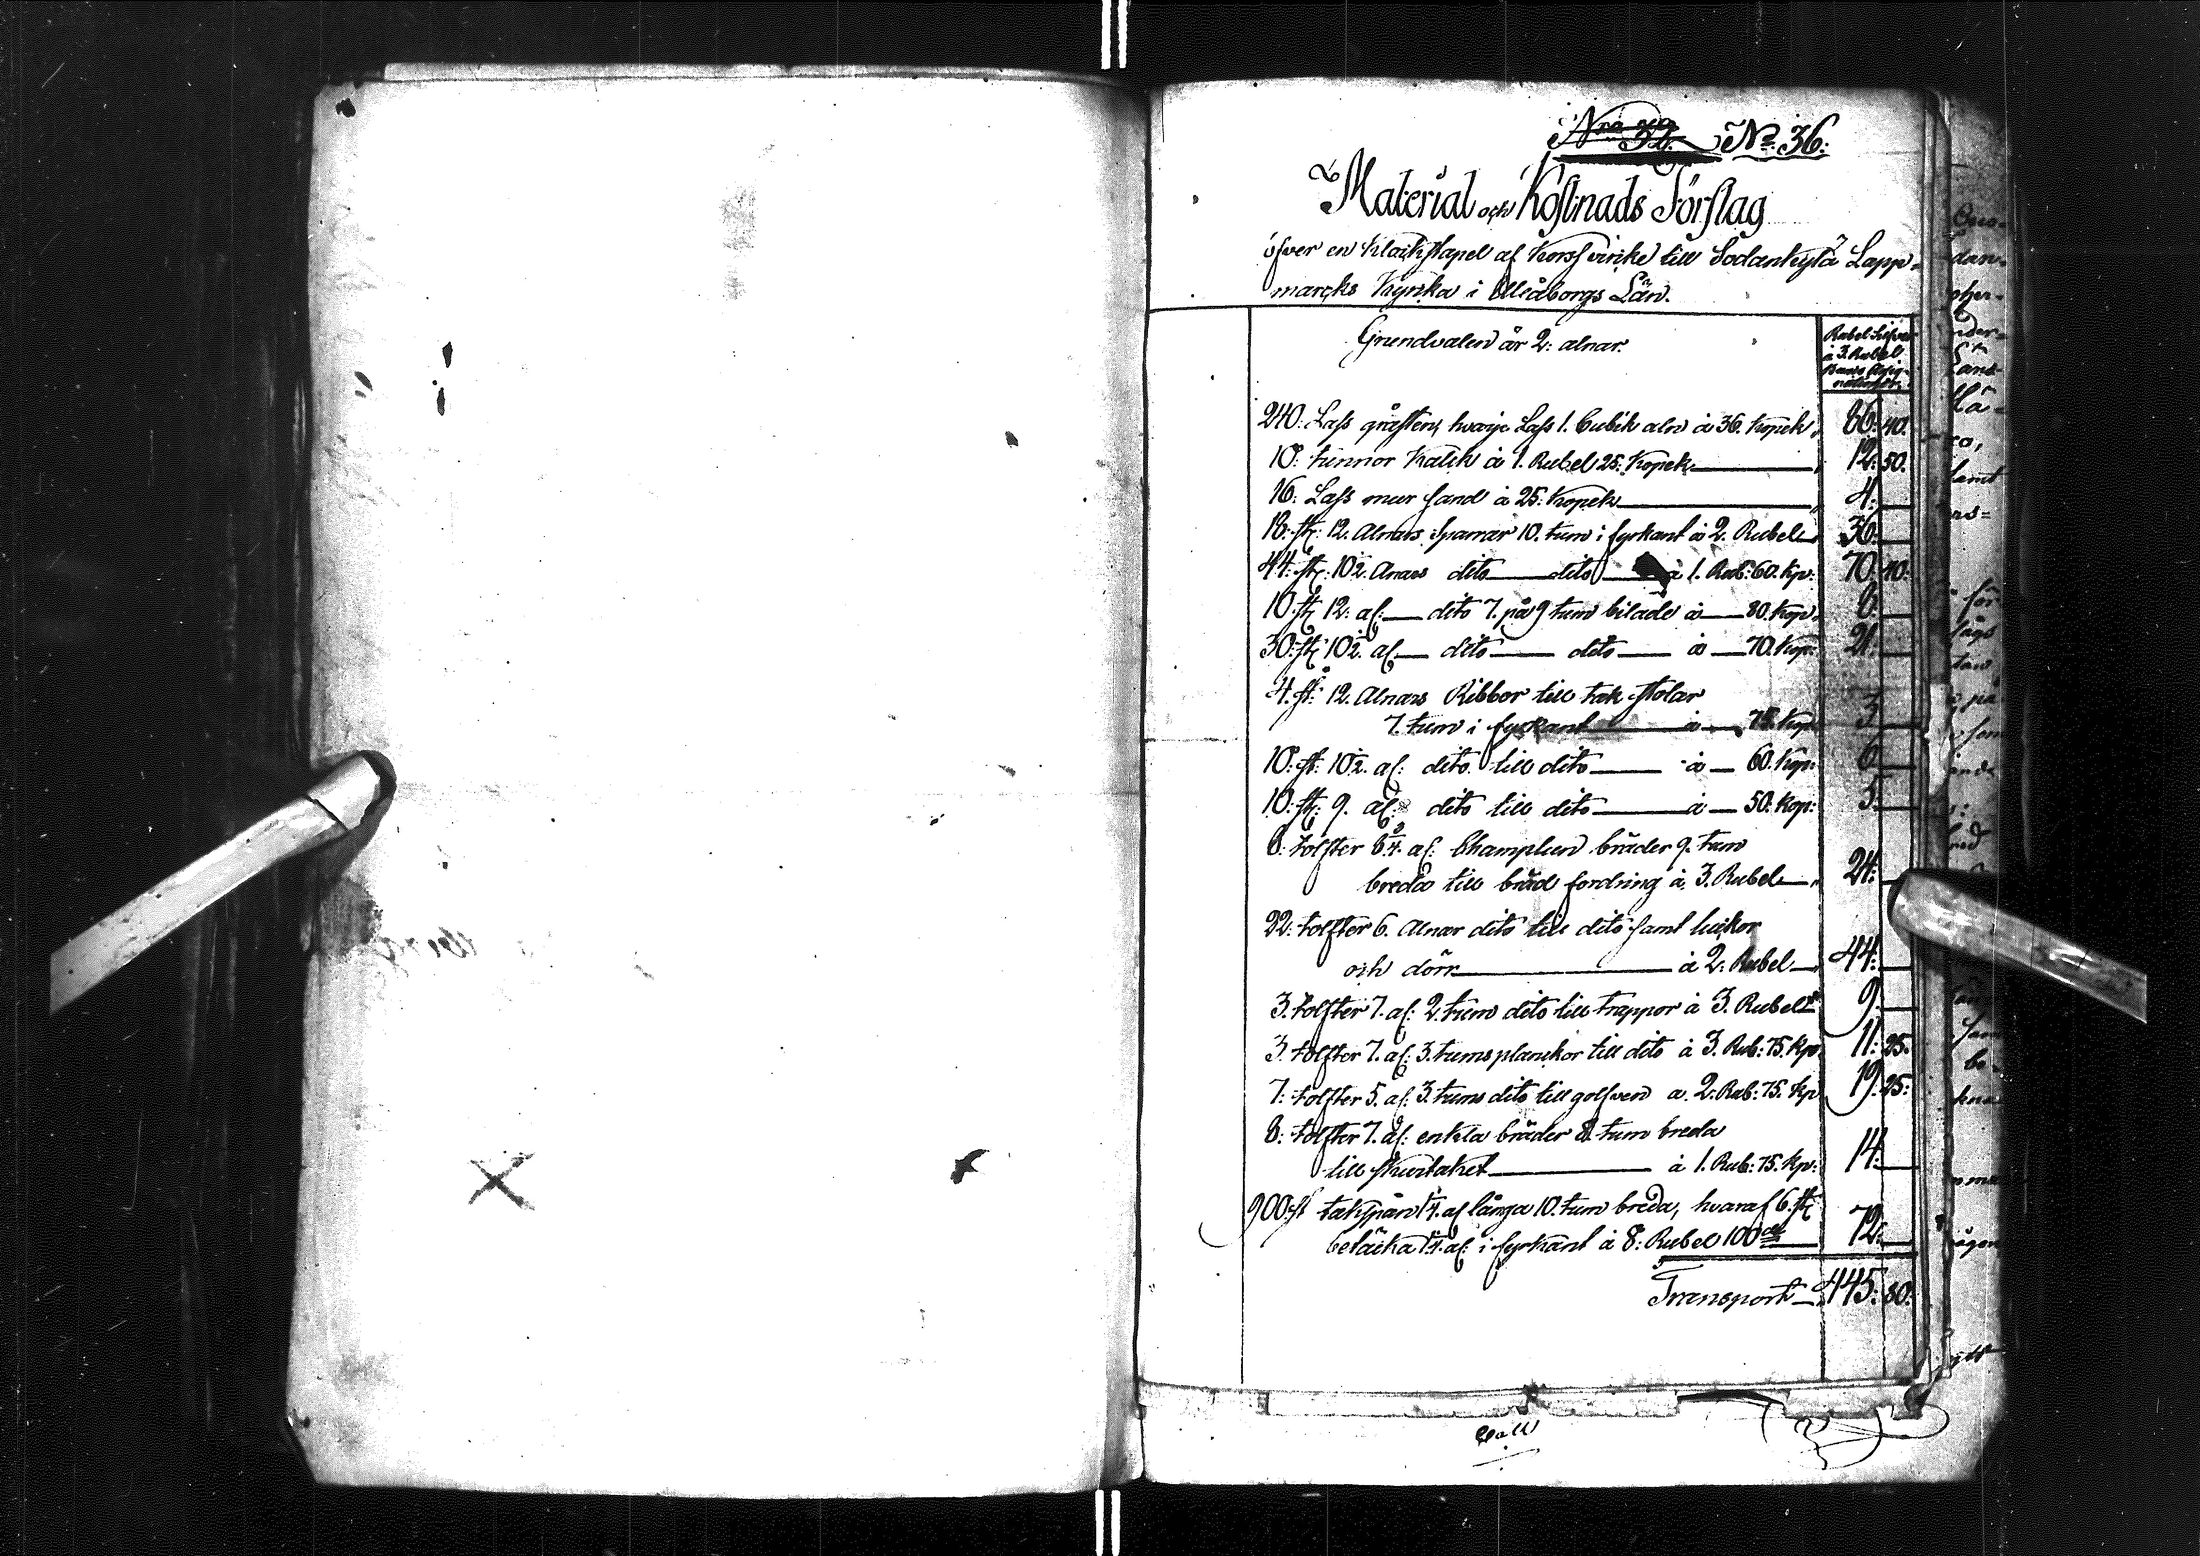 No 36:
Material och Kostnads Förslag
öfver en Klåckstapel af Korssvirke till Sodankylä Lapp-
marcks Kyrcka i Uleåborgs Län.
Grundvalen är 2: alnar.
Rubel Silfver
à 3. Rubel
Banco Assig-
nationer.
240: Lass gråsten, hvarje Lass 1. Cubik aln à 36. Kopek 86: 40.
10: tunnor Kalck à 1. Rubel 25: Kopek 12: 50.
16: Lass mur sand à 25: Kopek 4:
18: st: 12. Alnars Sparrar 10. tum i fyrkant à 2. Rubel 36:
44: st: 10½. Alnars dito dito à 1. Rub: 60. Kp: 70. 40.
10. st: 12: al: dito 7. på 9 tum bilade à 80. Kop. 8.
30: st: 10½. al: dito dito à 70. Kop: 21.
4. st: 12. Alnars Ribbor till tak stolar
7. tum i fyrkant à 75. Kop 3
10: st: 10½. al: dito till dito à 60. Kop: 6
10: st: 9. al: dito till dito à 50. Kop: 5.
8: tolfter 6¾. al: bräder 9. tum
breda till bräd fordring à 3. Rubel 24:
22: tolfter 6. Alnar dito till dito samt luckor
och dörr à 2: Rubel 44:
3. tolfter 7. al: 2. tum dito till trappor à 3. Rubel 9.
3. tolfter 7. al: 3. tums planckor till dito à 3. Rub: 75. Kp. 11: 25.
7: tolfter 5. al: 3. tums dito till golfven a. 2. Rub: 75. Kp 19. 25:
8: tolfter 7. al: enkla bräder 8. tum breda
till à 1. Rub: 75. Kp: 14:
900: st takspån 1¼. al långa 10. tum breda, hvaraf 6. st:
betäcka 1¼. al: i fyrkant à 8: Rubel 100de 72:
Transport 445: 80.